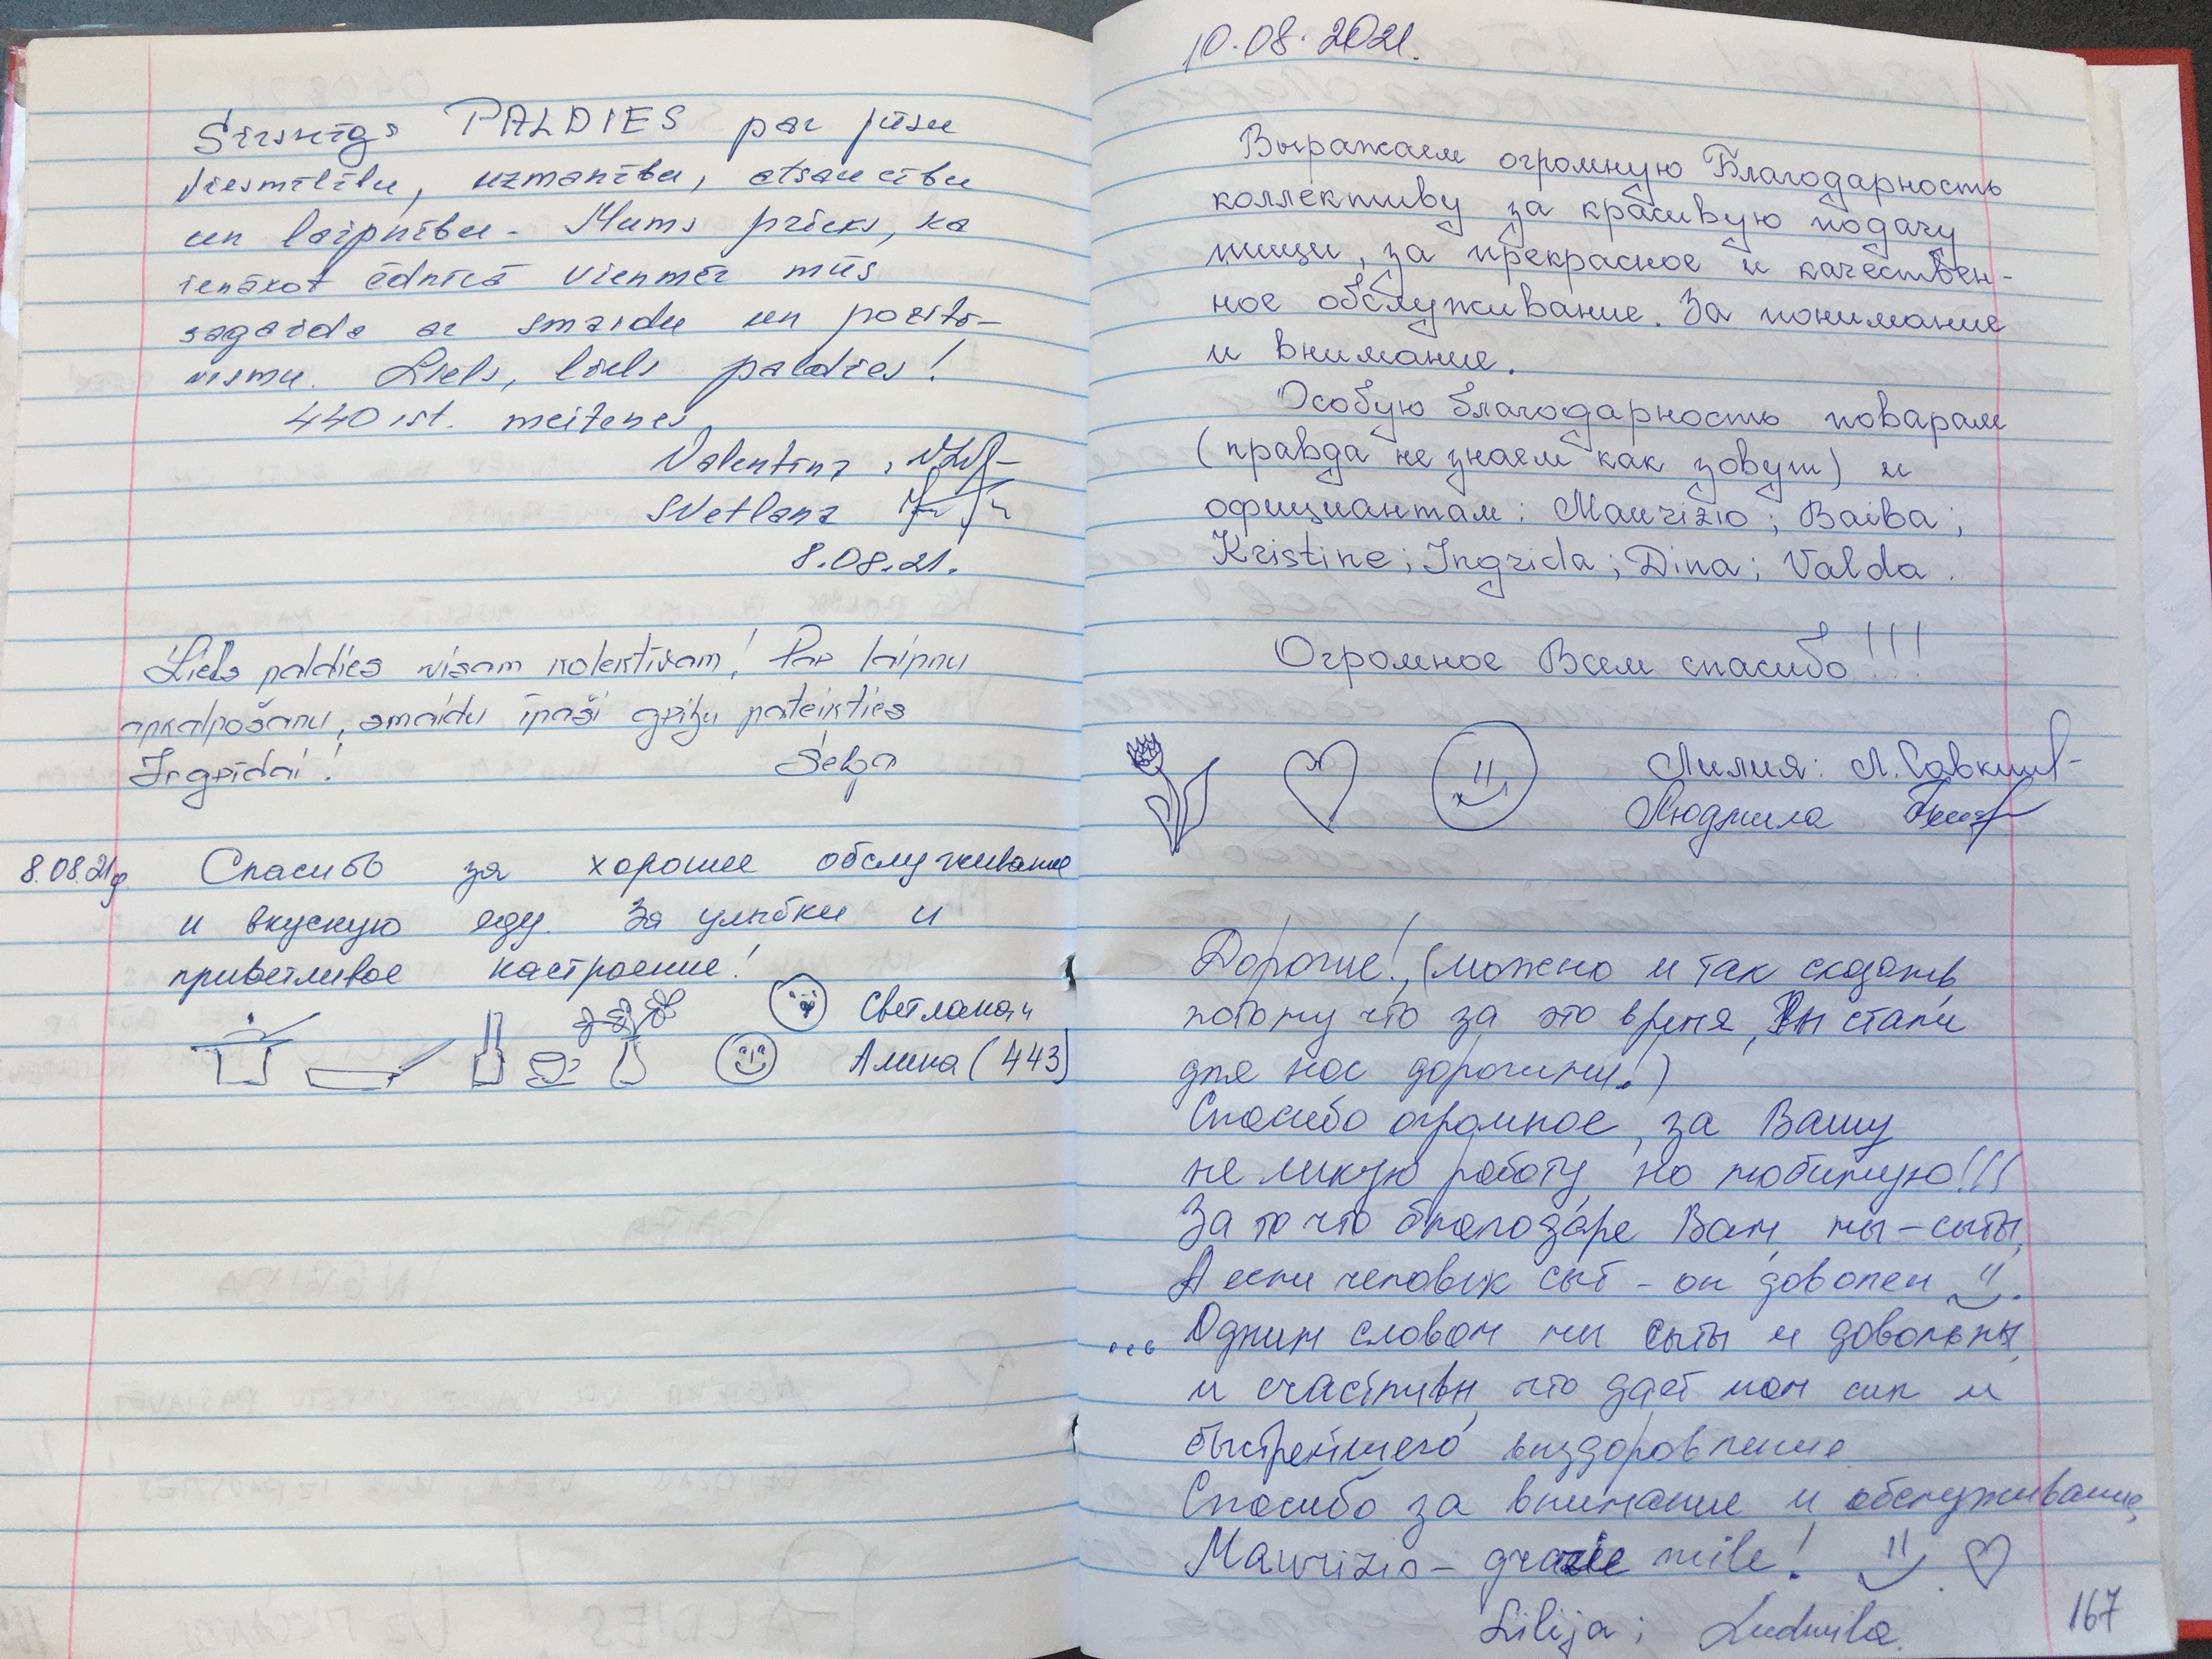 Sirsnīgs PALDIES par jūsu
viesmīlību, uzmanību, atsaucību
un laipnību. Mums prieks, ka
ienākot ēdnīcā vienmēr mūs
sagaida ar smaidu un pozitī-
vismu. Liels, liels paldies!
440 ist. meitenes
Valentīna,
Svetlana
8.08.21.
Liels paldies visam kolektīvam! Par laipnu
apkalpošanu, smaidu īpaši gribu pateikties
Ingrīdai!
Selga
8.08.21г. Спасибо за хорошее обслуживание
и вкусную еду. За улыбки и
приветливое настроение!
Светлана и
Алина (443)
10.08.2021.
Выражаем огромную Благодарность
коллективу за красивую подачу
пищи, за прекрасное и качествен-
ное обслуживание. За понимание
и внимание.
Особую благодарность поварам
(правда не знаем как зовут) и
официантам: Maurizio; Baiba;
Kristine; Ingrida; Dina; Valda.
Огромное Всем спасибо!!!
Лилия: Л.
Людмила
Дорогие! (можно и так сказать,
потому что за это время, Вы стали
для нас дорогими!)
Спасибо огромное, за Вашу
не лёгкую работу, но любимую!!!
За то что благодаре Вам, мы - сыты,
А если человек сыт - он доволен
... Одним словом мы сыты и довольны,
и счастливы, что даёт нам сил и
быстрейшего выздоровление.
Спасибо за внимание и обслуживание,
Maurizio - grazie mile!
Lilija; Ludmila.
167